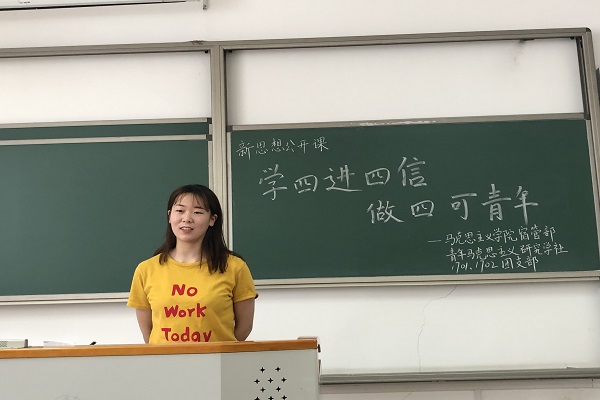 新思想公开课
学四进四信
做四可青年
——马克思主义学院宿管部
青年马克思主义研究学社
1901、1902团支部
No
Work
Today